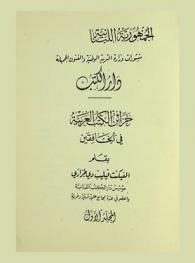 الجمهورية اللبنانية
منشورات وزارة التربية الوطنية والفنون الجميلة
دار الكتب
خزائن الكتب العربية
في الخافقين
بقلم
الفيكنت فيليب دي طرازي
مؤسس دار الكتب اللبنانية
المجلد الأول